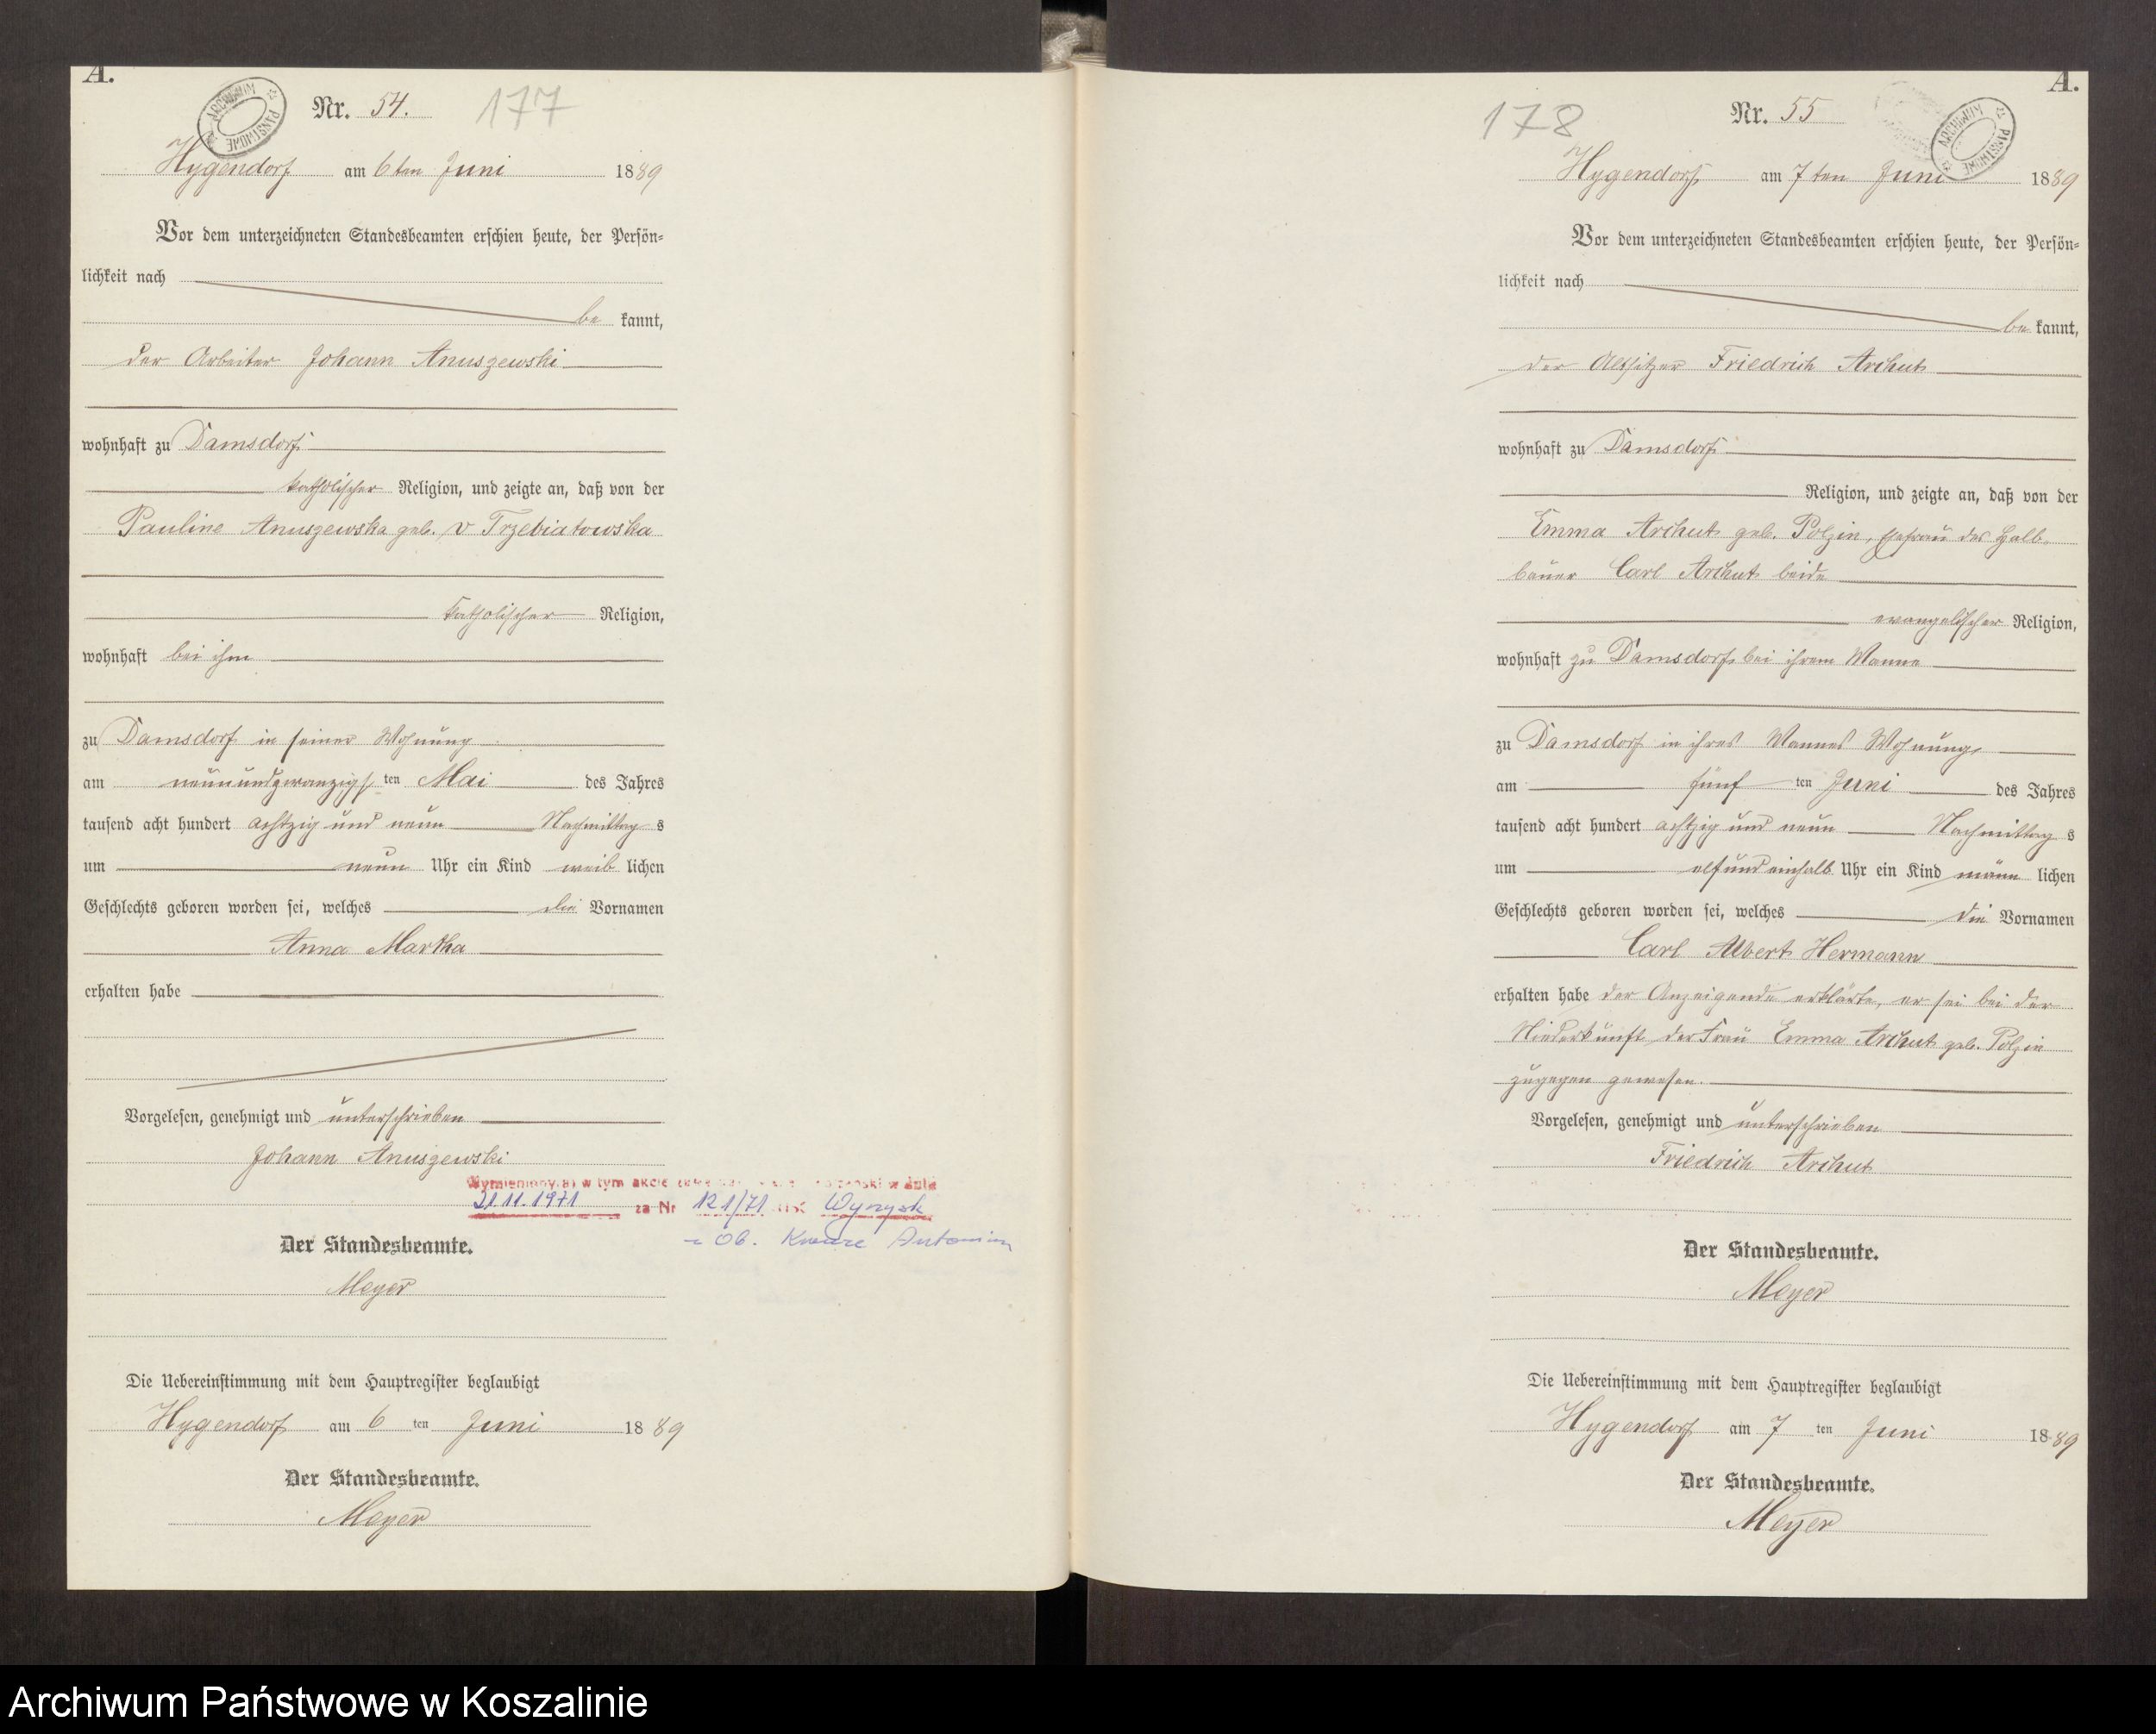 A.
Nr. 54.
177
Hygendorf am 6ten Juni 1889
Vor dem unterzeichneten Standesbeamten erschien heute, der Persön=
lichkeit nach
be kannt,
der Arbeiter Johann Anuszewski
wohnhaft zu Damsdorf
katholischer Religion, und zeigte an, daß von der
Pauline Anuszewska geb. v Trzebiatowska
katholischer Religion,
wohnhaft bei ihm
zu Damsdorf in seiner Wohnung
am neunundzwanzigsten Mai des Jahres
tausend acht hundert achtzig und neun Nachmittags
um neun Uhr ein Kind weiblichen
Geschlechts geboren worden sei, welches die Vornamen
Anna Martha
erhalten habe
Vorgelesen, genehmigt und unterschrieben
Johann Anuszewski
Wymieniony(a) w tym akcie w dniu
21.11.1971 za Nr 121/71 USC Wyrzysk
Der Standesbeamte.
Meyer
Die Uebereinstimmung mit dem Hauptregister beglaubigt
Hygendorf am 6 ten Juni 1889
Der Standesbeamte.
Meyer
A.
178
Nr. 55
ARCHIWUM PAŃSTWOWE
Hygendorf am 7ten Juni 1889
Vor dem unterzeichneten Standesbeamten erschien heute, der Persön=
lichkeit nach
be kannt,
der Altsitzer Friedrich Archut
wohnhaft zu Damsdorf
Religion, und zeigte an, daß von der
Emma Archut geb. Polzin, Ehefrau des Halb-
bauer Carl Archut beide
evangelischer Religion,
wohnhaft zu Damsdorf bei ihrem Manne
zu Damsdorf in ihres Mannes Wohnung
am fünf ten Juni des Jahres
tausend acht hundert achtzig und neun Nachmittags
um elf und einhalb Uhr ein Kind männlichen
Geschlechts geboren worden sei, welches die Vornamen
Carl Albert Hermann
erhalten habe der Anzeigende erklärte, er sei bei der
Niederkunft der Frau Emma Archut geb. Polzin
zugegen gewesen.
Vorgelesen, genehmigt und unterschrieben
Friedrich Archut
Der Standesbeamte.
Meyer
Die Uebereinstimmung mit dem Hauptregister beglaubigt
Hygendorf am 7 ten Juni 1889
Der Standesbeamte.
Meyer
Archiwum Państwowe w Koszalinie